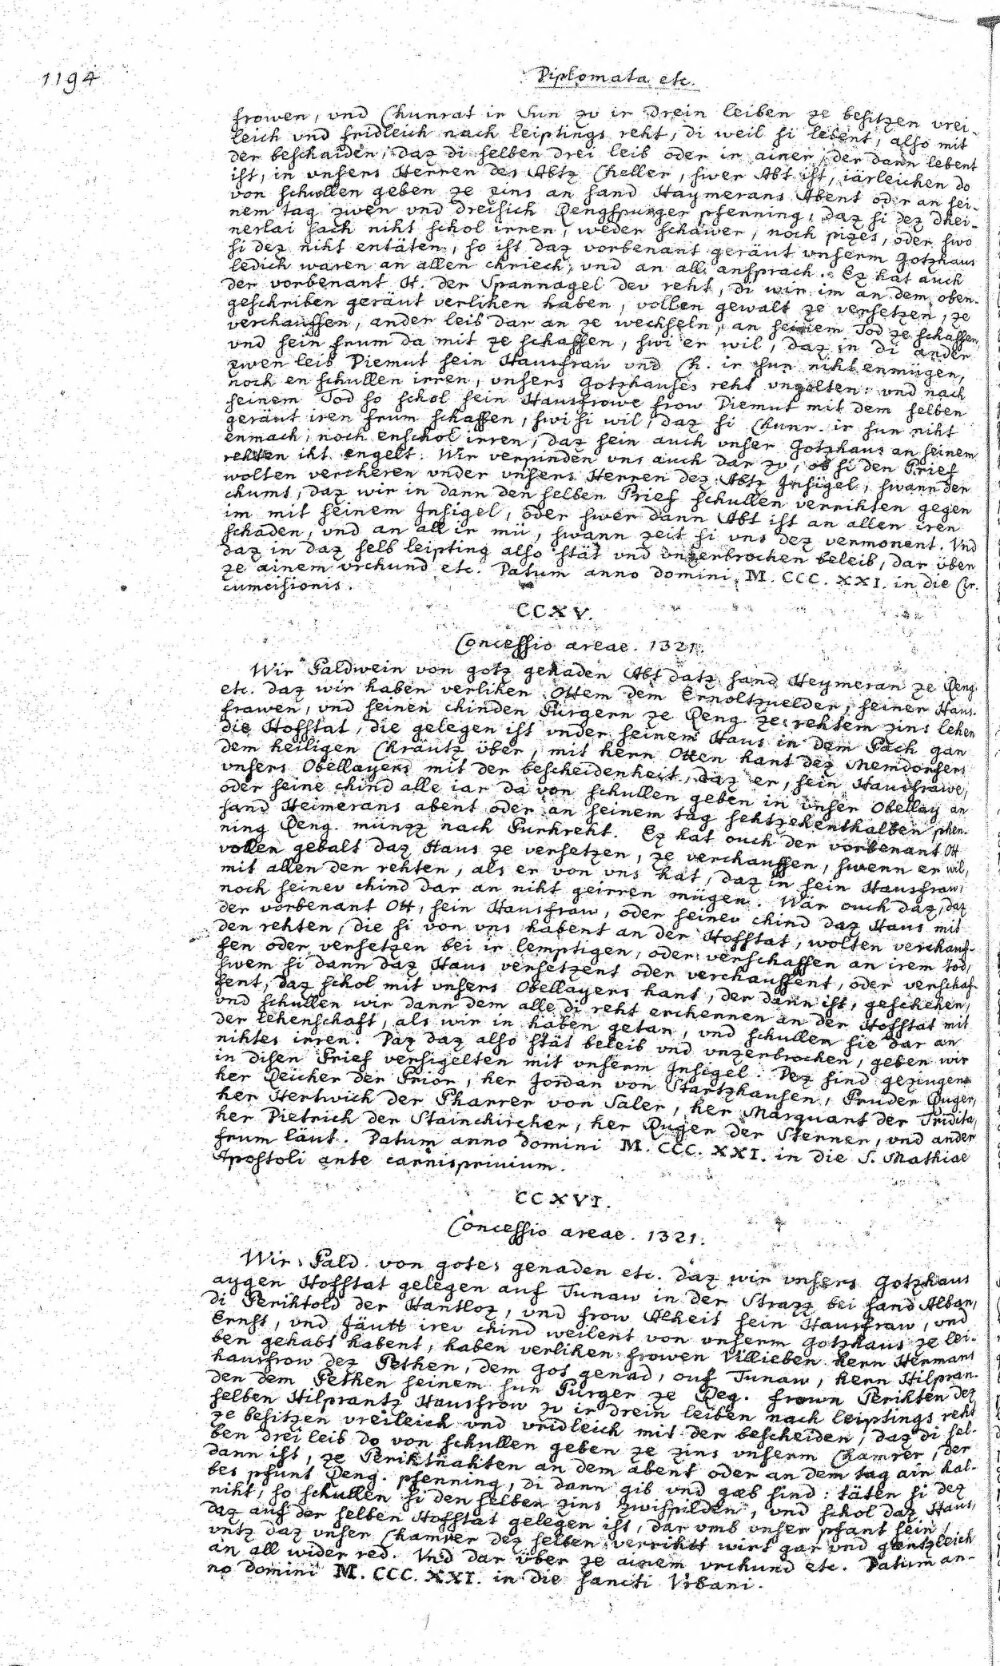 1194
Diplomata etc.
frowen, vnd Chunrat ir Sun zv ir drein leiben ze besitzen vrei-
leich vnd fridleich nach leiptings reht, di weil si lebent, also mit
der beschaiden, daz di selben drei leib oder ir ainer, der dann lebent
ist, in vnsers Herren des Abtz Cheller, swer Abt ist, iärleichen do
von schullen geben ze zins an sand Haymerans Abent oder an sei-
nem tag zwen vnd dreisich Rengspurger pfenning, daz si dez dhei-
nerlai sach niht schol irren, weder schawer, noch pizes, oder swo
si dez niht entäten, so ist daz vorbenant geräut vnserm Gotzhaus
ledich waren an allen chriech, vnd an all ansprach. Ez hat auch
der vorbenant H. der Spannagel dev reht, di wir im an dem oben-
geschriben geräut verlihen haben, vollen gewalt ze versetzen, ze
verchauffen, ander leib dar an ze wechseln, an seinem Tod ze schaffen,
vnd sein frum da mit ze schaffen, swi er wil, daz in di ander
zwen leib Diemut sein Hausfraw vnd Ch. ir sun niht enmügen,
noch en schullen irren, vnsers Gotzhauses reht vngolten: vnd nach
seinem Tod so schol sein Hausfrowe frow Diemut mit dem selben
geräut iren frum schaffen, swi si wil, daz si Chunr. ir sun niht
enmach, noch enschol irren, daz sein auch vnser Gotzhaus an seinem
rehten iht engelt: Wir verpinden vns auch dar zv, ob si den Prief
wolten vercheren vnder vnsers Herren dez Abtz Insigel, swann der
chumt, daz wir in dann den selben Prief schullen verrihten gegen
im mit seinem Insigel, oder swer dann Abt ist an allen iren
schaden, vnd an all ir mü, swann zeit si vns dez vermonent. Vnd
daz in daz selb leipting also stät vnd vnzerbrochen beleib, dar über
ze ainem vrchund etc. Datum anno domini M. CCC. XXI. in die Cir-
cumcisionis.
CCXV.
Concessio areae. 1321.
Wir Paldwein von gotz genaden Abt datz sand Heymeran ze Reng.
etc. daz wir haben verlihen Ottem dem Ernoltzvelder, seiner Haus-
frawen, vnd seinen chinden Pürgern ze Reng. ze rehtem zins lehen
die Hofstat, die gelegen ist vnder seinem Haus in dem Pach gan
dem heiligen Chräutz über, mit hern Otten hant dez Memdorfers
vnsers Obellayers mit der bescheidenheit, daz er, sein Hausfrawe,
oder seine chind alle iar da von schullen geben in vnser Obellay an
sand Heimerans abent oder an seinem tag sehtzehenthalben phen-
ning Reng. müngz nach Purkreht. Ez hat ouch der vorbenant Ott
vollen gebalt daz Haus ze versetzen, ze verchauffen, swenn er wil,
mit allen den rehten, als er von vns hat, daz in sein Hausfraw,
noch seinev chind dar an niht geirren mügen. Wär ouch daz, daz
der vorbenant Ott, sein Hausfraw, oder seinev chind daz Haus mit
den rehten, die si von vns habent an der Hofstat, wolten verchauf-
fen oder versetzen bei ir lemptigen, oder verschaffen an irem tod,
swem si dann daz Haus versetzent oder verchauffent, oder verschaf-
fent, daz schol mit vnsers Obellayers hant, der dann ist, geschehen,
vnd schullen wir dann dem alle di reht erchennen an der Hofstat mit
der lehenschaft, als wir in haben getan, vnd schullen sie dar an
nihtes irren. Daz daz also stät beleib vnd vnzerbrochen, geben wir
in disen Prief versigelten mit vnserm Insigel. Dez sind gezeugen
her Reicher der Prior, her Jordan von Startzhausen, Pruder Ruger,
her Hertwich der Pharrer von Saler, her Marquart der Tridita,
her Dietrich der Stainchircher, her Ruger der Sterner, vnd ander
frum läut. Datum anno domini M. CCC. XXI. in die S. Mathiae
Apostoli ante carnisprivium.
CCXVI.
Concessio areae. 1321.
Wir Pald. von gotes genaden etc. daz wir vnsers Gotzhaus
aygen Hofstat gelegen auf Tunaw in der Strazz bei sand Alban,
di Perihtold der Hantloz, vnd frow Alheit sein Hausfraw, vnd
Ernst, vnd Jäutt irev chind weilent von vnserm Gotzhaus ze lei-
ben gehabt habent, haben verlihen frowen Villieben hern Hermans
hausfrow dez Pethen, dem Got genad, ouf Tunaw, hern Hilpran-
den dem Pethen seinem sun Pürger ze Reg. frown Perihten dez
selben Hilprantz Hausfrow zv ir drein leiben nach leiptings reht
ze besitzen vreileich vnd vridleich mit der bescheiden, daz di sel-
ben drei leib do von schullen geben ze zins vnserm Chamrer, der
dann ist, ze Perihtnahten an dem abent oder an dem tag ain hal-
bes pfunt Reng. pfenning, di dann gib vnd gæb sind: täten si dez
niht, so schullen si den selben zins zwispilden, vnd schol daz Haus,
daz auf der selben Hofstat gelegen ist, dar vmb vnser pfant sein,
vntz daz vnser Chamrer dez selben verriht wirt gar vnd gæntzleich
an all wider red. Vnd dar über ze ainem vrchund etc. Datum an-
no domini M. CCC. XXI. in die sancti Vrbani.